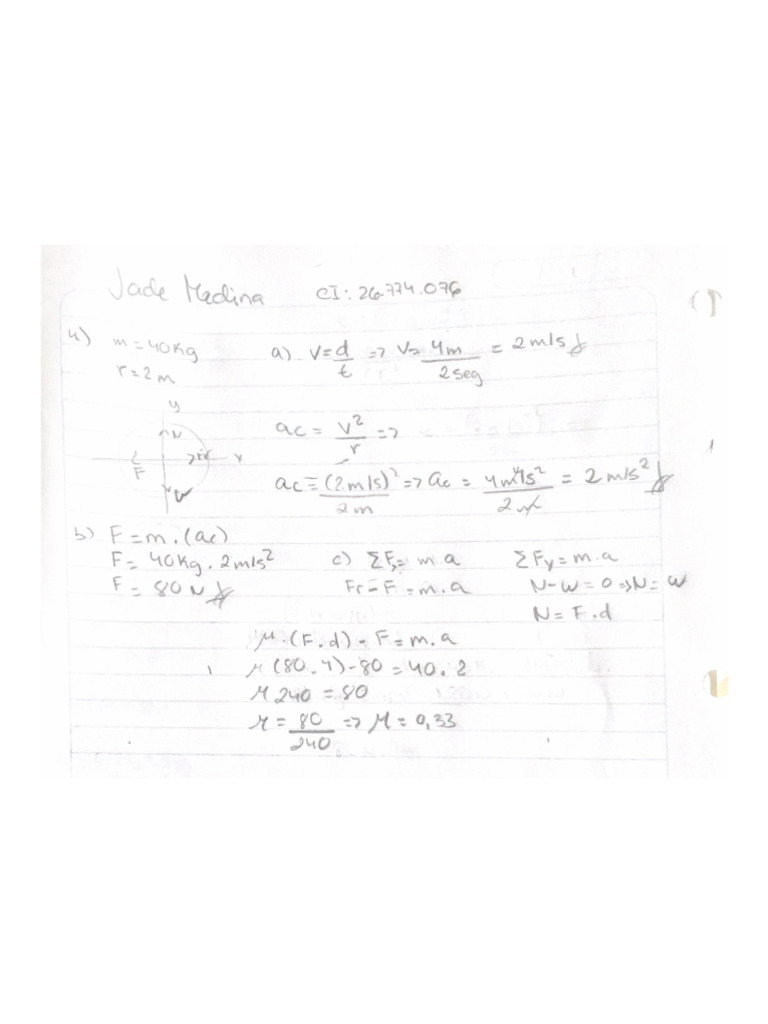 Jade Medina CI: 26.774.076
4) m = 40kg
r = 2m
a) V = d/t => V = 4m/2seg = 2m/s
y
N
x
F
Fr
W
ac = V²/r =>
ac = (2m/s)²/2m => ac = 4m²/s²/2m = 2m/s²
b) F = m . (ac)
F = 40kg . 2m/s²
F = 80N
c) ΣFx = m.a
Fr - F = m.a
ΣFy = m.a
N - W = 0 => N = W
N = F.d
μ . (F.d) - F = m.a
μ (80.4) - 80 = 40.2
μ 240 = 80
μ = 80/240 => μ = 0,33